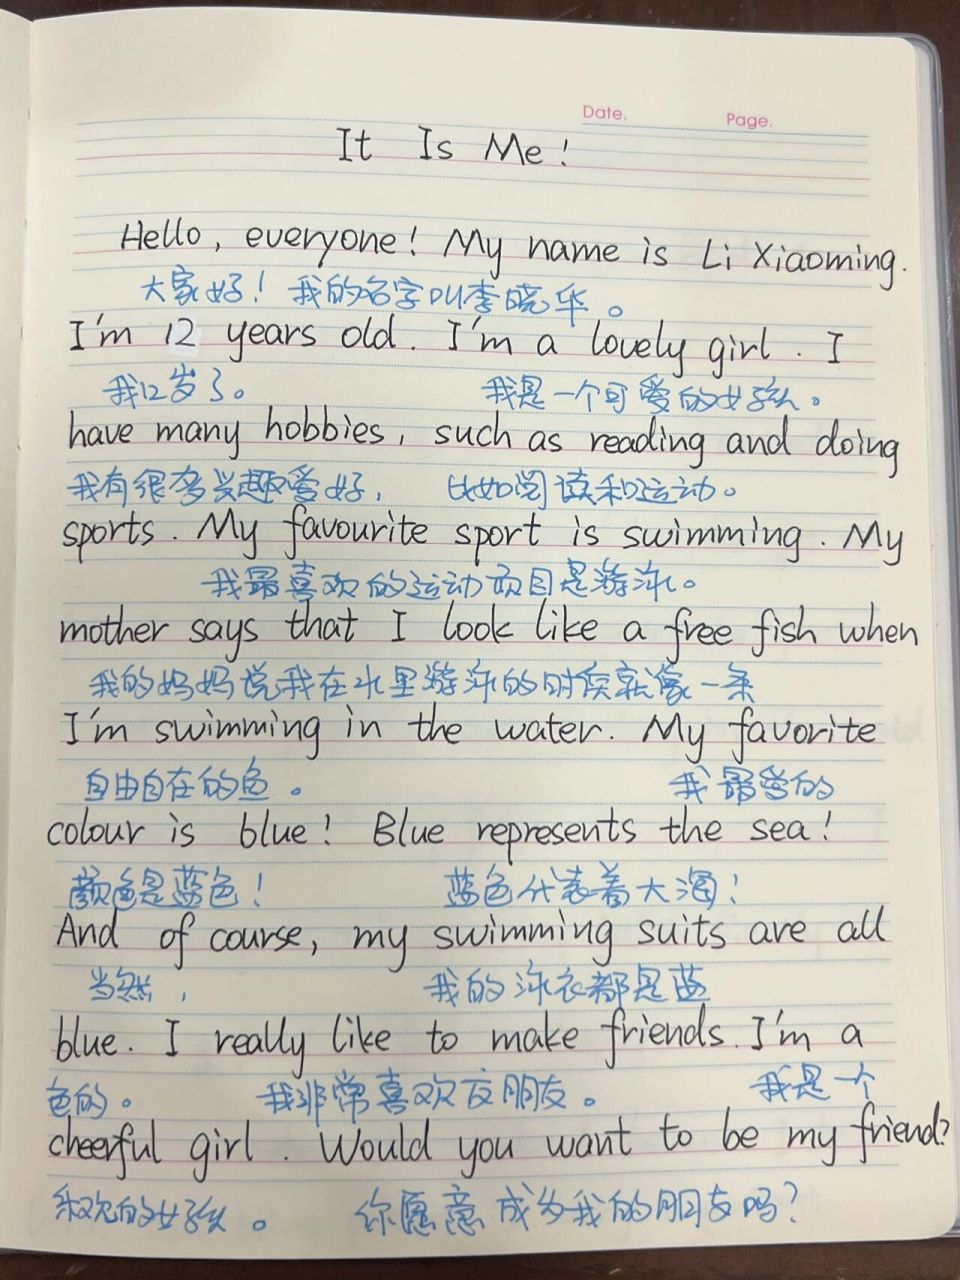 Date. Page.
It Is Me!
Hello, everyone! My name is Li Xiaoming.
大家好！我的名字叫李晓华。
I'm 12 years old. I'm a lovely girl. I
我12岁了。 我是一个可爱的女孩儿。
have many hobbies, such as reading and doing
我有很多兴趣爱好， 比如阅读和运动。
sports. My favourite sport is swimming. My
我最喜欢的运动项目是游泳。
mother says that I look like a free fish when
我的妈妈说我在水里游泳的时候就像一条
I'm swimming in the water. My favorite
自由自在的鱼。 我最爱的
colour is blue! Blue represents the sea!
颜色是蓝色！ 蓝色代表着大海！
And of course, my swimming suits are all
当然， 我的泳衣都是蓝
blue. I really like to make friends. I'm a
色的。 我非常喜欢交朋友。 我是一个
cheerful girl. Would you want to be my friend?
乐观的女孩儿。 你愿意成为我的朋友吗？